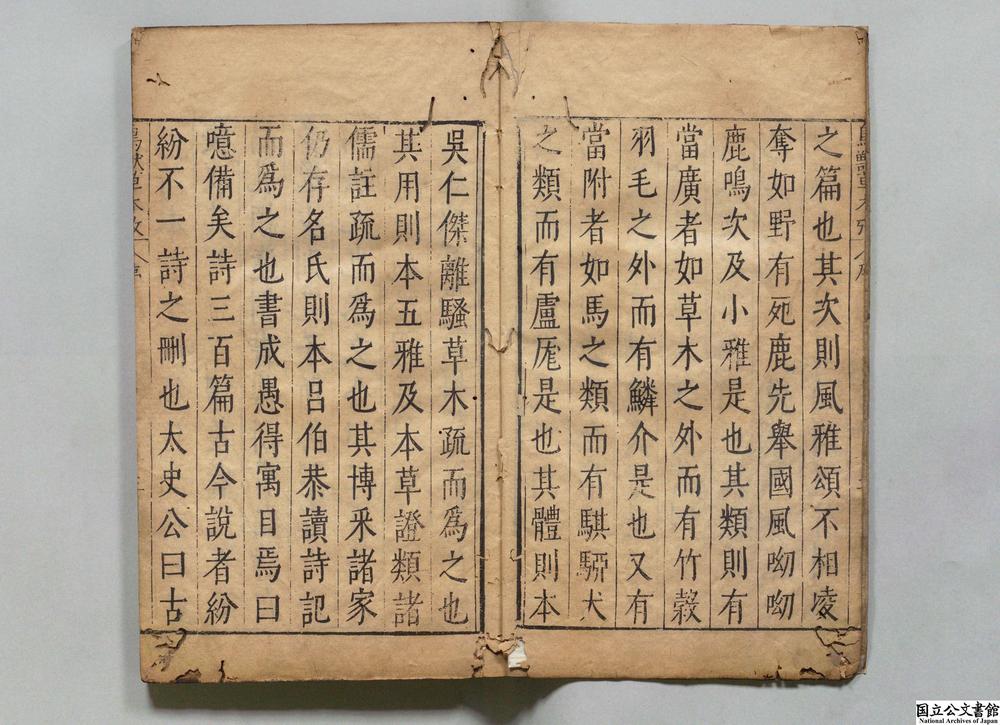 之篇也其次則風雅頌不相凌
奪如野有死鹿先舉國風呦呦
鹿鳴次及小雅是也其類則有
當廣者如草木之外而有竹穀
羽毛之外而有鱗介是也又有
當附者如馬之類而有騏驛犬
之類而有盧厖是也其體則本
吳仁傑離騷草木疏而爲之也
其用則本五雅及本草證類諸
儒註疏而爲之也其博采諸家
仍存名氏則本呂伯恭讀詩記
而爲之也書成愚得寓目焉曰
噫備矣詩三百篇古今說者紛
紛不一詩之刪也太史公曰古
国立公文書館
National Archives of Japan